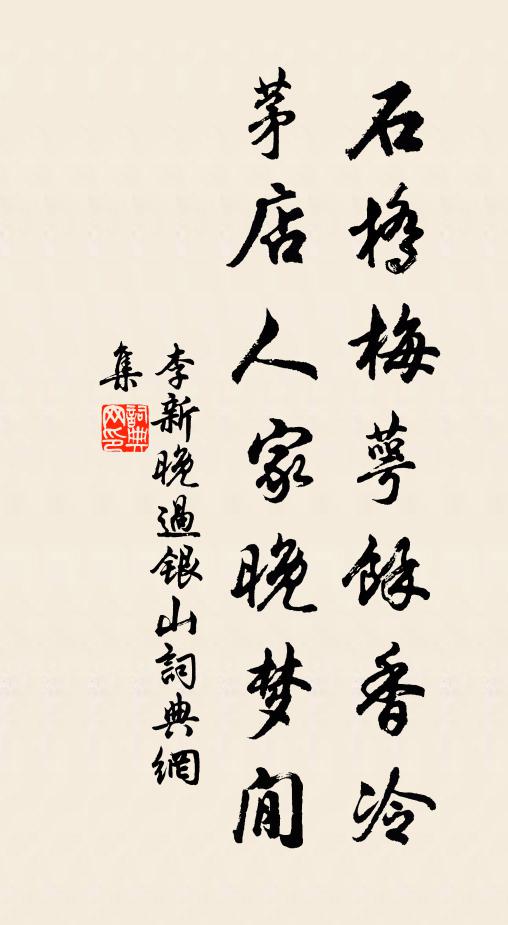 石橋梅萼餘香冷
茅店人家晚梦閒
李新晚過银山詞典網
集
詞典网印